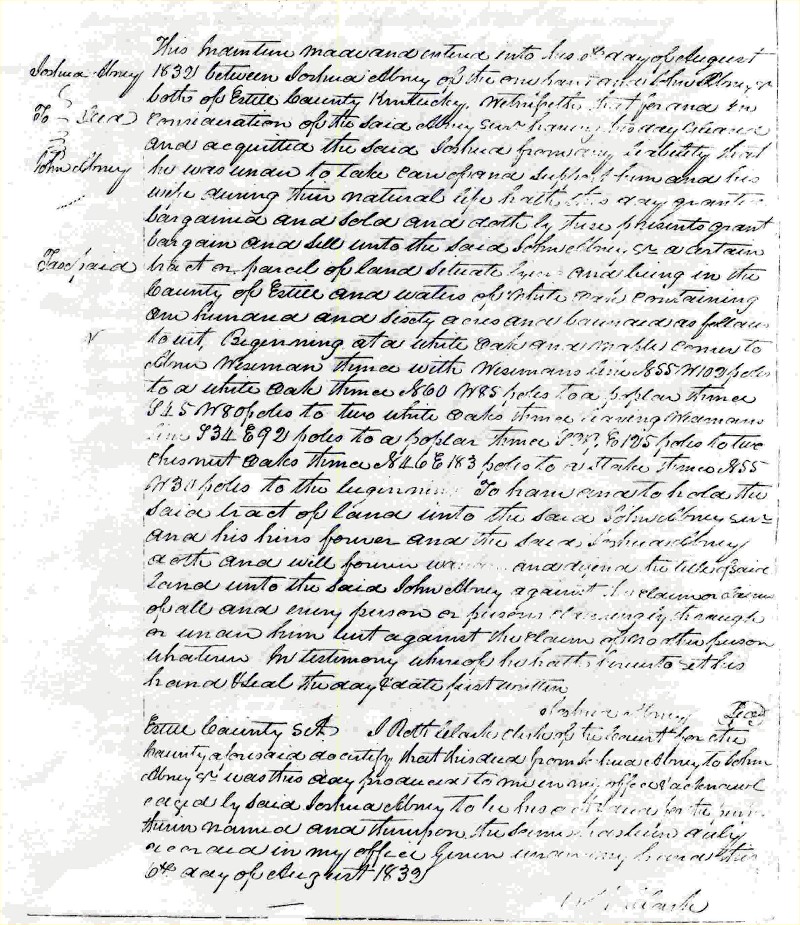 This Indenture made and entered into this 6th day of August
Joshua Abney 1832 between Joshua Abney of the one hand and John Abney sr
both of Estill County Kentucky. Witnesseth that for and in
To Deed consideration of the said Abney senr having this day released
and acquitted the said Joshua from any liability that
John Abney he was under to take care of and support him and his
wife during their natural life hath this day granted
bargained and sold and doth by these presents grant
bargain and sell unto the said John Abney sr a certain
Tax paid tract or parcel of land situate lying and being in the
County of Estill and waters of White Oak containing
one hundred and sixty acres and bounded as follows
to wit, Beginning at a white Oak and maple corner to
Abner Wiseman thence with Wisemans line N55 W102 poles
to a white Oak thence N60 W85 poles to a poplar thence
S45 W80 poles to two white Oaks thence leaving Wisemans
line S34 E92 poles to a poplar thence E125 poles to two
chesnut Oaks thence N46 E183 poles to a stake thence N55
W30 poles to the beginning To have and to hold the
said tract of land unto the said John Abney senr
and his heirs forever and the said Joshua Abney
doth and will forever and defend the title of said
Land unto the said John Abney against the claim or claims
of all and every person or persons claiming by through
or under him but against the claim of no other person
whatever In testimony whereof he hath hereunto set his
hand & seal the day & date first written
Joshua Abney Seal
Estill County Sct I Robt Clark clerk of the court for the
County aforesaid do certify that this deed from Joshua Abney to John
Abney sr was this day produced to me in my office & acknowl
edged by said Joshua Abney to be his act & deed for the purpose
therein named and thereupon the same has been duly
recorded in my office Given under my hand this
6th day of August 1832
Clark